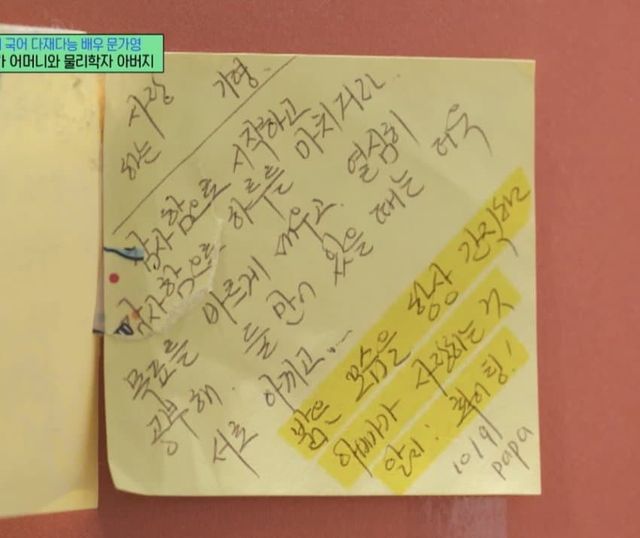 국어 다재다능 배우 문가영
어머니와 물리학자 아버지
사랑
하는 가형.
감사함으로 시작하고
감사함으로 하루를 마치거라..
목표를 바르게 세우고. 열심히
공부해. 둘만이 있을 때는 더욱
서로 아끼고...
밝은 모습을 항상 간직하길
아빠가 사랑하는 것
알지! 화이팅!
papa